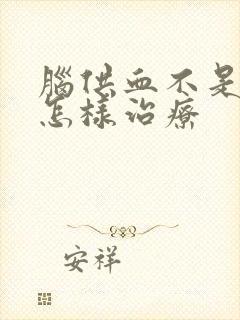 腦供血不是
怎樣治療
安祥